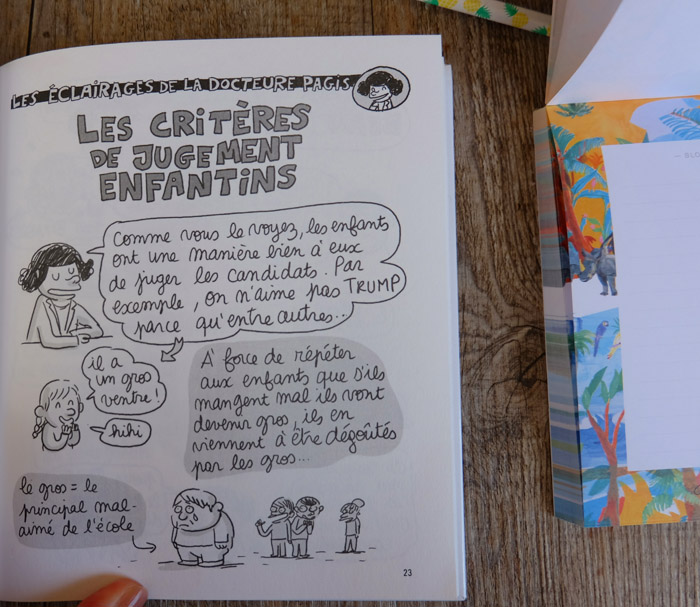 LES ÉCLAIRAGES DE LA DOCTEURE PAGIS
LES CRITÈRES
DE JUGEMENT
ENFANTINS
Comme vous le voyez, les enfants
ont une manière bien à eux
de juger les candidats. Par
exemple, on n'aime pas TRUMP
parce qu'entre autres..
il a
un gros
ventre!
hihi
A force de répéter
aux enfants que s'ils
mangent mal ils vont
devenir gros, ils en
viennent à être dégoûtés
par les gros...
le gros = le
principal mal-
aimé de l'école
23